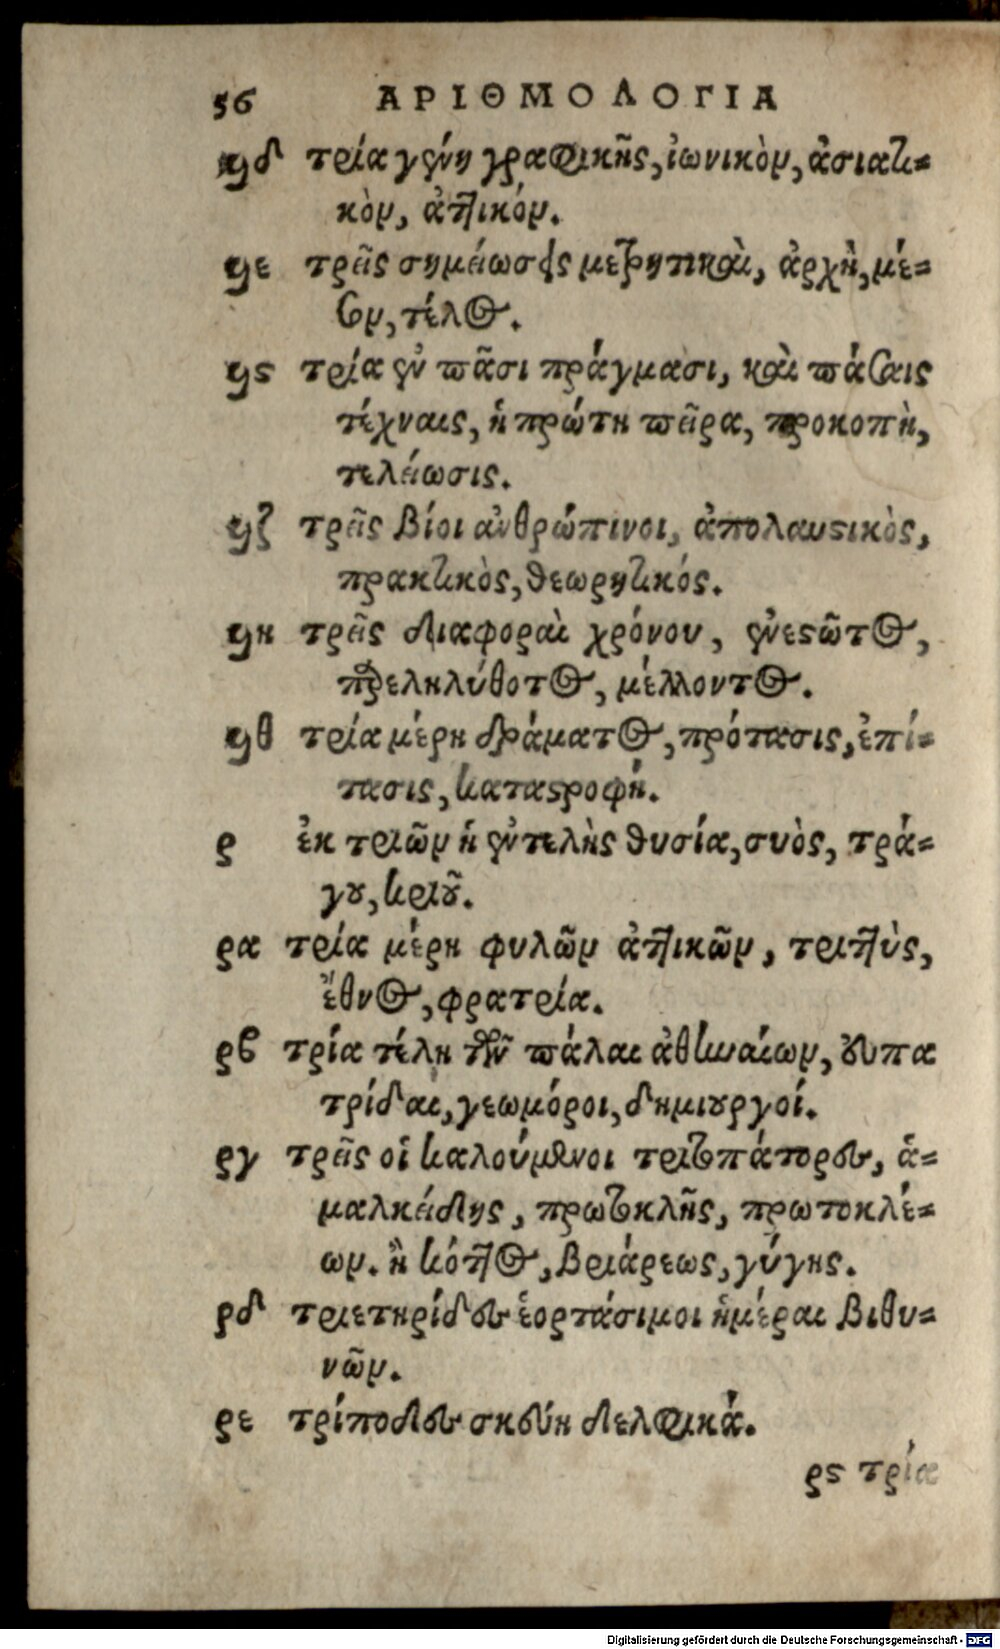 56 ΑΡΙΘΜΟΛΟΓΙΑ
ϟδ τρία γένη γραφικῆς, ἰωνικὸν, ἀσιατι-
κὸν, ἀττικόν.
ϟε τρεῖς σημειώσεις μετρητικαὶ, ἀρχὴ, μέ-
σον, τέλος.
ϟς τρία ἐν πᾶσι πράγμασι, καὶ πάσαις
τέχναις, ἡ πρώτη πεῖρα, προκοπὴ,
τελείωσις.
ϟζ τρεῖς βίοι ἀνθρώπινοι, ἀπολαυστικὸς,
πρακτικὸς, θεωρητικός.
ϟη τρεῖς διαφοραὶ χρόνου, ἐνεστῶτος,
παρεληλύθοτος, μέλλοντος.
ϟθ τρία μέρη δράματος, πρότασις, ἐπί-
τασις, καταστροφή.
ρ ἐκ τριῶν ἡ ἐντελὴς θυσία, συὸς, τρά-
γου, κριοῦ.
ρα τρία μέρη φυλῶν ἀττικῶν, τριττὺς,
ἔθνος, φρατρία.
ρβ τρία τέλη τῶν πάλαι ἀθηναίων, εὐπα
τρίδαι, γεωμόροι, δημιουργοί.
ργ τρεῖς οἱ καλούμενοι τριτοπάτορες, ἁ-
μαλκείδης, πρωτοκλῆς, πρωτοκλέ-
ων. ἢ κόττος, βριάρεως, γύγης.
ρδ τριετηρίδες ἑορτάσιμοι ἡμέραι βιθυ-
νῶν.
ρε τρίποδες σκεύη δελφικά.
ρς τρία
Digitalisierung gefördert durch die Deutsche Forschungsgemeinschaft - DFG